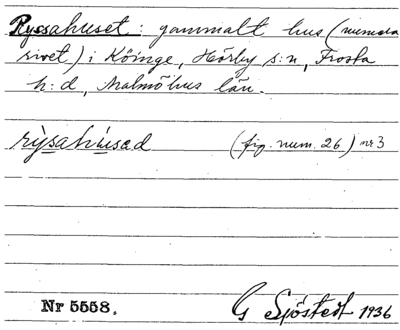 Ryssahuset: gammalt hus (numera
rivet) i Köinge, Hörby s:n, Frosta
h:d, Malmöhus län.
rỳsahúsad (fig. num. 26) nr 3
Nr 5558. G Sjöstedt 1936